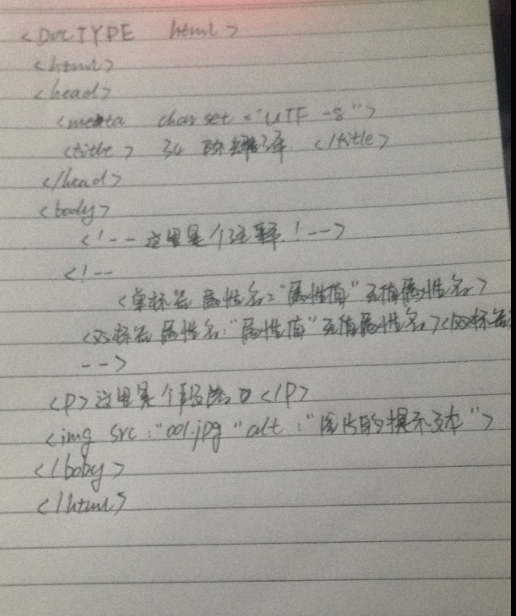 <DOCTYPE html>
<html>
<head>
<meta charset="UTF-8">
<title> 34 </title>
</head>
<body>
<!-- 这里是个注释!-->
<!--
<单标签 属性名="属性值" 无值属性名>
<双标签 属性名:"属性值" 无值属性名></双标签
-->
<p>这里是个段落</p>
<img src:"001.jpg" alt:"图片的提示文本">
</boby>
</html>